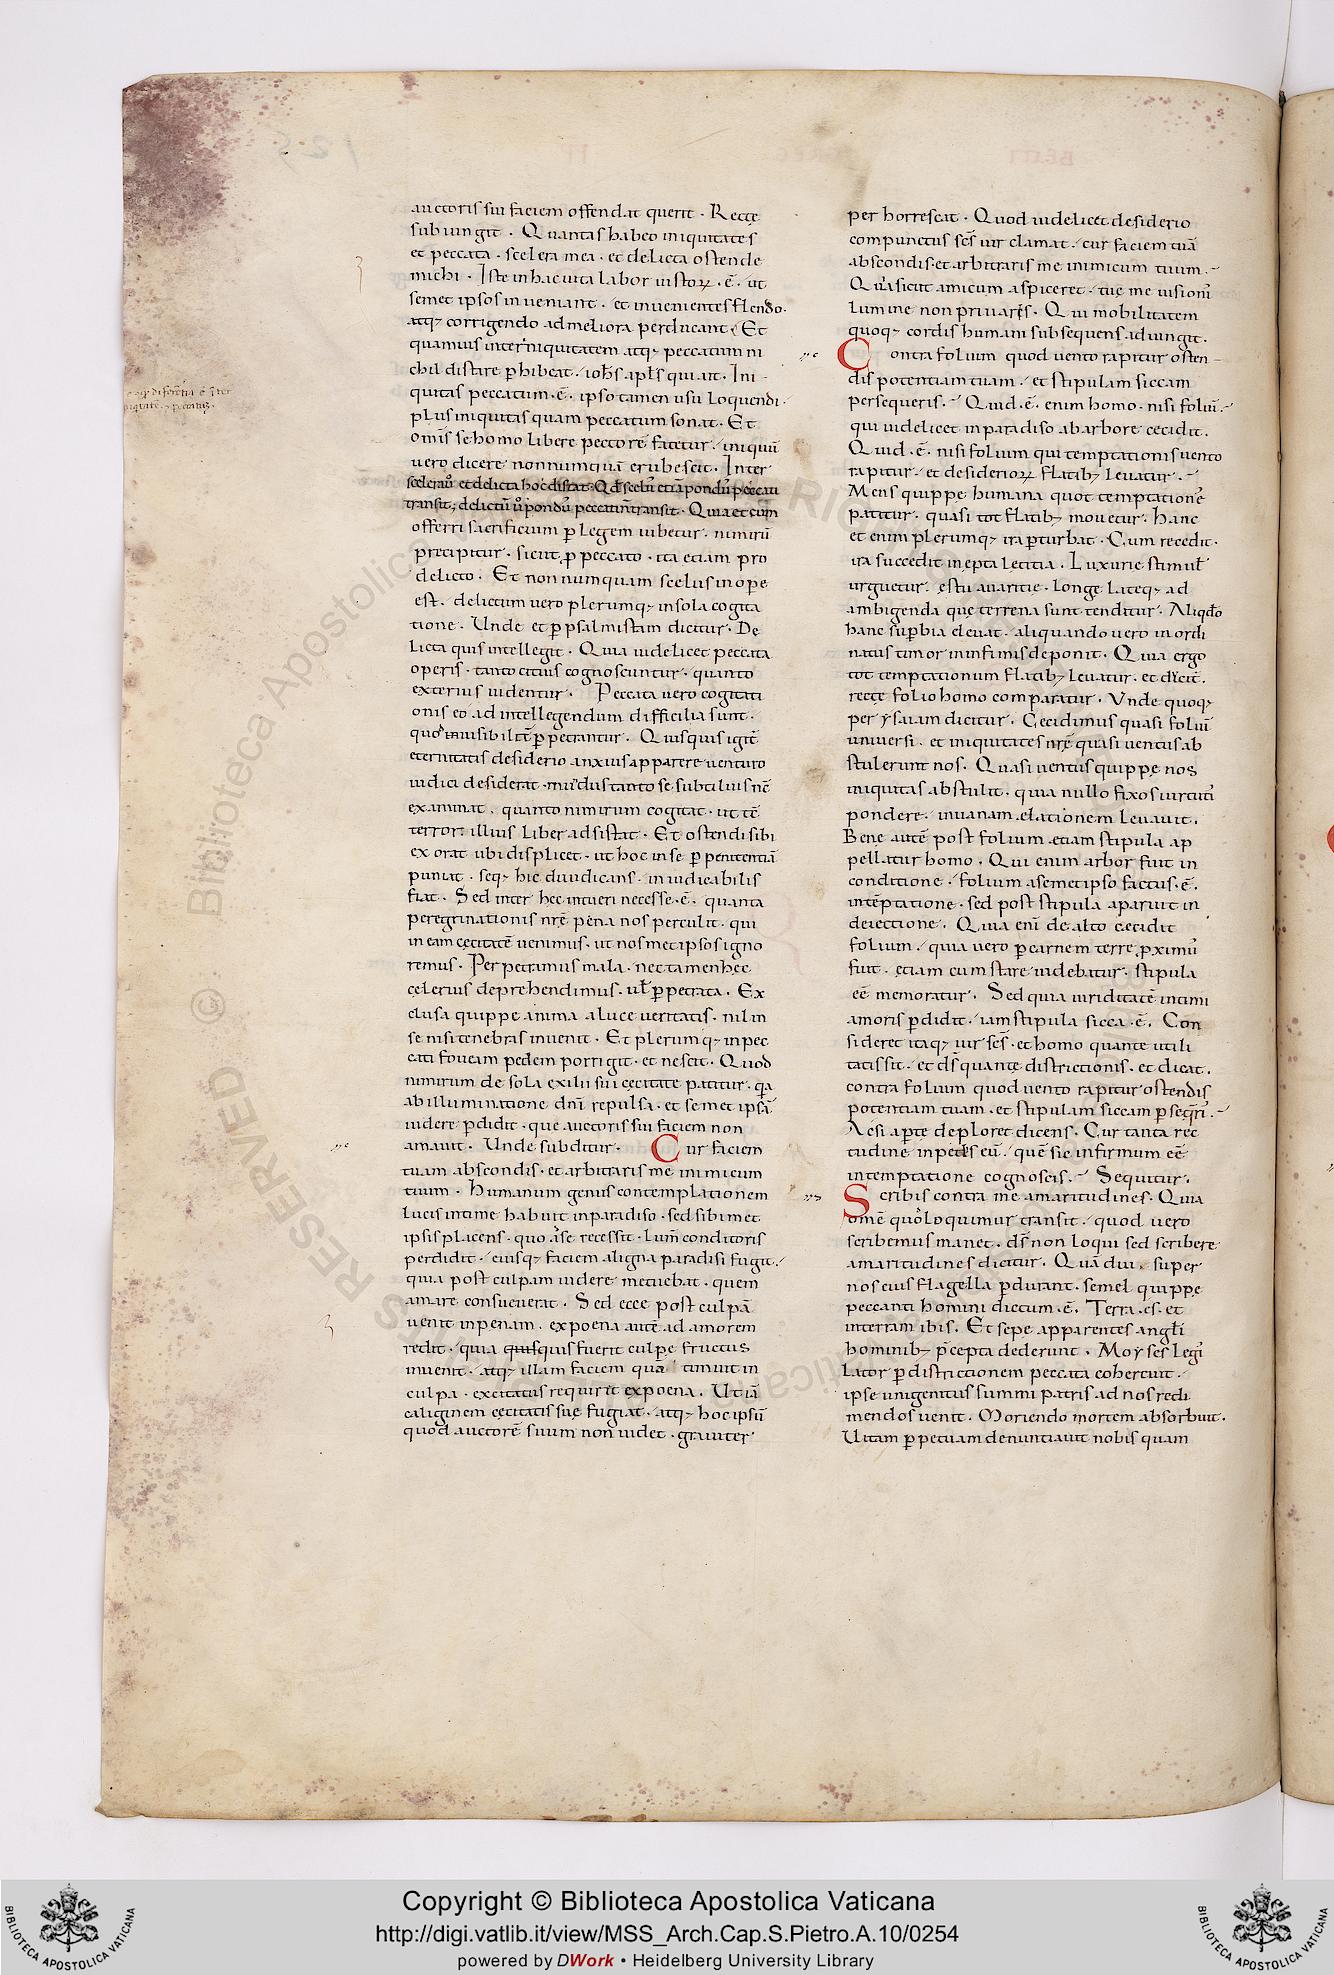 auctoris sui faciem offendat querit · Recte
subiungit · Quantas habeo iniquitates
et peccata · scelera mea · et delicta ostende
michi · Iste in hac uita labor iustoꝝ · ē · ut
semet ipsos inueniant · et inuenientes flendo ·
atq; corrigendo ad meliora perducant · Et
quamuis inter iniquitatem atq; peccatum ni
chil distare ꝑhibeat · ioħs apłs qui ait · Ini-
quitas peccatum · ē · ipso tamen usu loquendi ·
plus iniquitas quam peccatum sonat · Et
omīs se homo libere peccatorē fatetur · iniquū
uero dicere nonnumquā erubescit · Inter
offerri sacrificium ꝑ legem iubetur · nimirū
precipitur · sicut ꝓ peccato · ita etiam pro
delicto · Et non numquam scelus in ope
est · delictum uero plerumq; in sola cogita
tione · Unde et ꝑ psalmistam dicitur · De
licta quis intellegit · Quia uidelicet peccata
operis · tanto citius cognoscuntur · quanto
exterius uidentur · Peccata uero cogitati
onis eo ad intellegendum difficilia sunt ·
quo inuisibilit̄ ꝑpetrantur · Quisquis igit̄
eternitatis desiderio anxius apparere uenturo
iudici desiderat · mundus tanto se subtilius nc̄
examinat · quanto nimirum cogitat · ut tc̄
terrori illius liber adsistat · Et ostendi sibi
exorat ubi displicet · ut hoc in se ꝑ penitentiā
puniat · seq; hic diiudicans · iniudicabilis
fiat · Sed inter hec intueri necesse · ē · quanta
peregrinationis nrē pena nos perculit · qui
in eam cęcitatē uenimus · ut nosmet ipsos igno
remus · Perpetramus mala · nec tamen hec
cęlerius deprehendimus · uł ꝑpetrata · Ex
clusa quippe anima a luce ueritatis · nil in
se nisi tenebras inuenit · Et plerumq; in pec
cati foueam pedem porrigit · et nescit · Quod
nimirum de sola exilii sui cęcitate patitur · qa
ab illuminatione dnī repulsa · et semet ipsā
uidere ꝑdidit · que auctoris sui faciem non
amauit · Unde subditur · Cur faciem
tuam abscondis · et arbitraris me inimicum
tuum · Humanum genus contemplationem
lucis intime habuit in paradiso · sed sibimet
ipsi placens · quo a se recessit · lum̄ conditoris
perdidit · eiusq; faciem a ligna paradisi fugit ·
quia post culpam uidere metuebat · quem
amare consueuerat · Sed ecce post culpā
uenit in penam · ex poena autē ad amorem
redit · quia quisquis fuerit culpe fructus
inuenit · atq; illam faciem quā timuit in
culpa · excitatus requirit ex poena · Ut iā
caliginem cęcitatis sue fugiat · atq; hoc ipsū
quod auctorē suum non uidet · grauiter
per horrescat · Quod uidelicet desiderio
compunctus scs̄ uir clamat · cur faciem tuā
abscondis · et arbitraris me inimicum tuum ·
Qui a sicut amicum aspiceret · tue me uisionī
lumine non priuares · Qui mobilitatem
quoq; cordis humani subsequens adiungit ·
Contra folium quod uento rapitur osten-
dis potentiam tuam · et stipulam siccam
persequeris · Quid · ē · enim homo · nisi foliū ·
qui uidelicet in paradiso ab arbore cecidit ·
Quid · ē · nisi folium qui temptationis uento
rapitur · et desiderioꝝ flatib; leuatur ·
Mens quippe humana quot temptationē
patitur · quasi tot flatib; mouetur · Hanc
et enim plerumq; ira ꝑturbat · Cum recedit ·
ira succedit inepta lętitia · Luxurie stimuł
urguetur · estu auaritie · longe lateq; ad
ambigenda que terrena sunt tenditur · Aliqdo
hanc supbia eleuat · aliquando uero inordi
natus timor in infimis deponit · Quia ergo
tot temptationum flatib; leuatur · et ducit ·
recte folio homo comparatur · Unde quoq;
per ysaiam dicitur · Cecidimus quasi foliū
uniuersi · et iniquitates nrē quasi uentus ab
stulerunt nos · Quasi uentus quippe nos
iniquitas abstulit · quia nullo fixos uirtutī
pondere · in uanam elationem leuauit ·
Bene autē post folium etiam stipula ap
pellatur homo · Qui enim arbor fuit in
conditione · folium a semet ipso factus · ē ·
in tēptatione · sed post stipula aparuit in
deiectione · Quia enī de alto cecidit
folium · quia uero ꝑ carnem terre ꝓximū
fuit · etiam cum stare uidebatur · stipula
eē memoratur · Sed quia uiriditatē intimi
amoris ꝑdidit · iam stipula sicca · ē · Con
sideret itaq; uir scs̄ · et homo quante utili
tatis sit · et ds̄ quante districtionis · et dicat ·
contra folium quod uento rapitur ostendis
potentiam tuam · et stipulam siccam ꝑseqrī ·
Ac si apte deploret dicens · Cur tanta rec
tudine inpetis eū · quē sic infirmum eē
in temptatione cognoscis · Sequitur ·
Scribis contra me amaritudines · Quia
omē quo loquimur transit · quod uero
scribemus manet · ds̄ non loqui sed scribere
amaritudines dicitur · Quā diu · super
nos eius flagella ꝑdurant · semel quippe
peccanti homini dictum · ē · Terra · es · et
in terram ibis · Et sepe apparentes angłi
hominib; pcepta dederunt · Moyses legī
lator ꝑ districtionem peccata cohercuit ·
ipse unigenitus summi patris ad nos redi
mendos uenit · Moriendo mortem absorbuit ·
Uitam ꝑpetuam denuntiauit nobis quam
Copyright © Biblioteca Apostolica Vaticana
http://digi.vatlib.it/view/MSS_Arch.Cap.S.Pietro.A.10/0254
powered by DWork • Heidelberg University Library